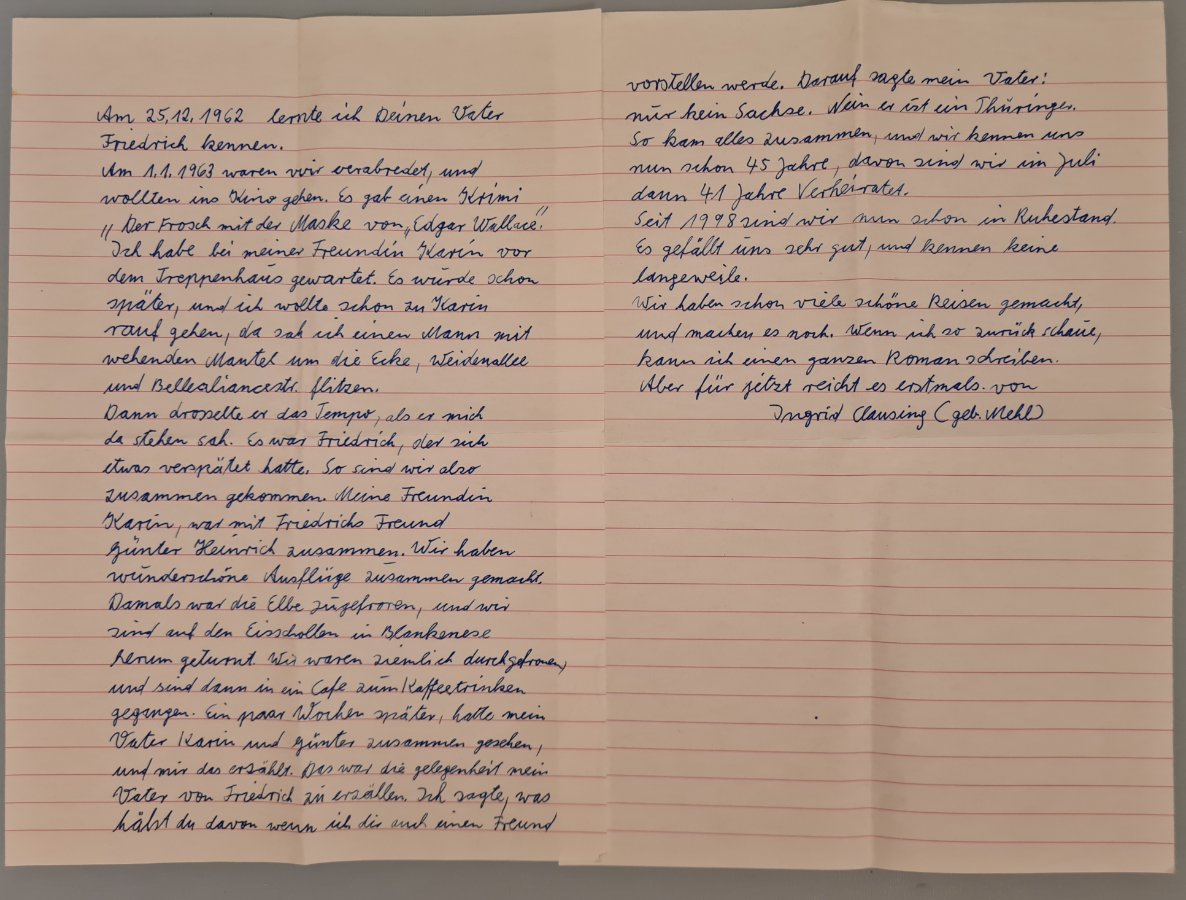 Am 25.12.1962 lernte ich Deinen Vater
Friedrich kennen.
Am 1.1.1963 waren wir verabredet, und
wollten ins Kino gehen. Es gab einen Krimi
„Der Frosch mit der Maske von „Edgar Wallace".
Ich habe bei meiner Freundin Karin vor
dem Treppenhaus gewartet. Es wurde schon
später, und ich wollte schon zu Karin
rauf gehen, da sah ich einen Mann mit
wehenden Mantel um die Ecke, Weidenallee
und Bellealiancestr. flitzen.
Dann drosselte er das Tempo, als er mich
da stehen sah. Es war Friedrich, der sich
etwas verspätet hatte. So sind wir also
zusammen gekommen. Meine Freundin
Karin, war mit Friedrichs Freund
Günter Heinrich zusammen. Wir haben
wunderschöne Ausflüge zusammen gemacht.
Damals war die Elbe zugefroren, und wir
sind auf den Eisschollen in Blankenese
herum geturnt. Wir waren ziemlich durchgefroren,
und sind dann in ein Cafe zum Kaffeetrinken
gegangen. Ein paar Wochen später, hatte mein
Vater Karin und Günter zusammen gesehen,
und mir das erzählt. Das war die gelegenheit mein
Vater von Friedrich zu erzällen. Ich sagte, was
hälst du davon wenn ich dir auch einen Freund
vorstellen werde. Darauf sagte mein Vater:
nur kein Sachse. Nein er ist ein Thüringer.
So kam alles zusammen, und wir kennen uns
nun schon 45 Jahre, davon sind wir im Juli
dann 41 Jahre Verheiratet.
Seit 1998 sind wir nun schon in Ruhestand.
Es gefällt uns sehr gut, und kennen keine
langeweile.
Wir haben schon viele schöne Reisen gemacht,
und machen es noch. Wenn ich so zurück schaue,
kann ich einen ganzen Roman schreiben.
Aber für jetzt reicht es erstmals. von
Ingrid Clausing (geb. Mehl)